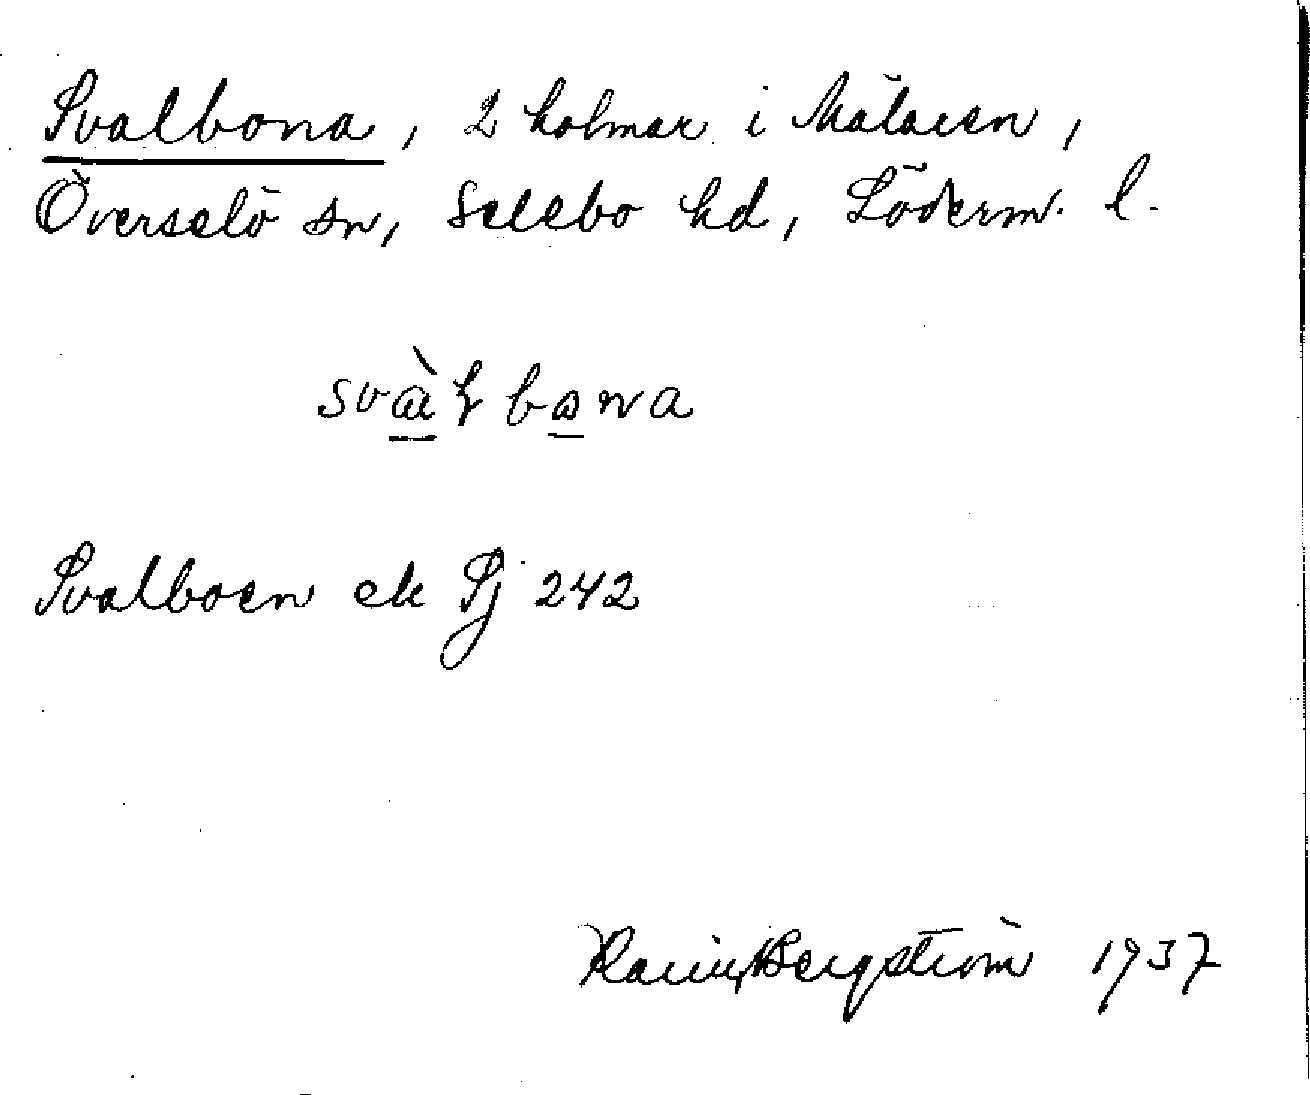 Svalbona, 2 holmar i Mälaren,
Överselö sn, Selebo hd, Söderm. l.
Svalboen ek Sj 242
Bergström 1937